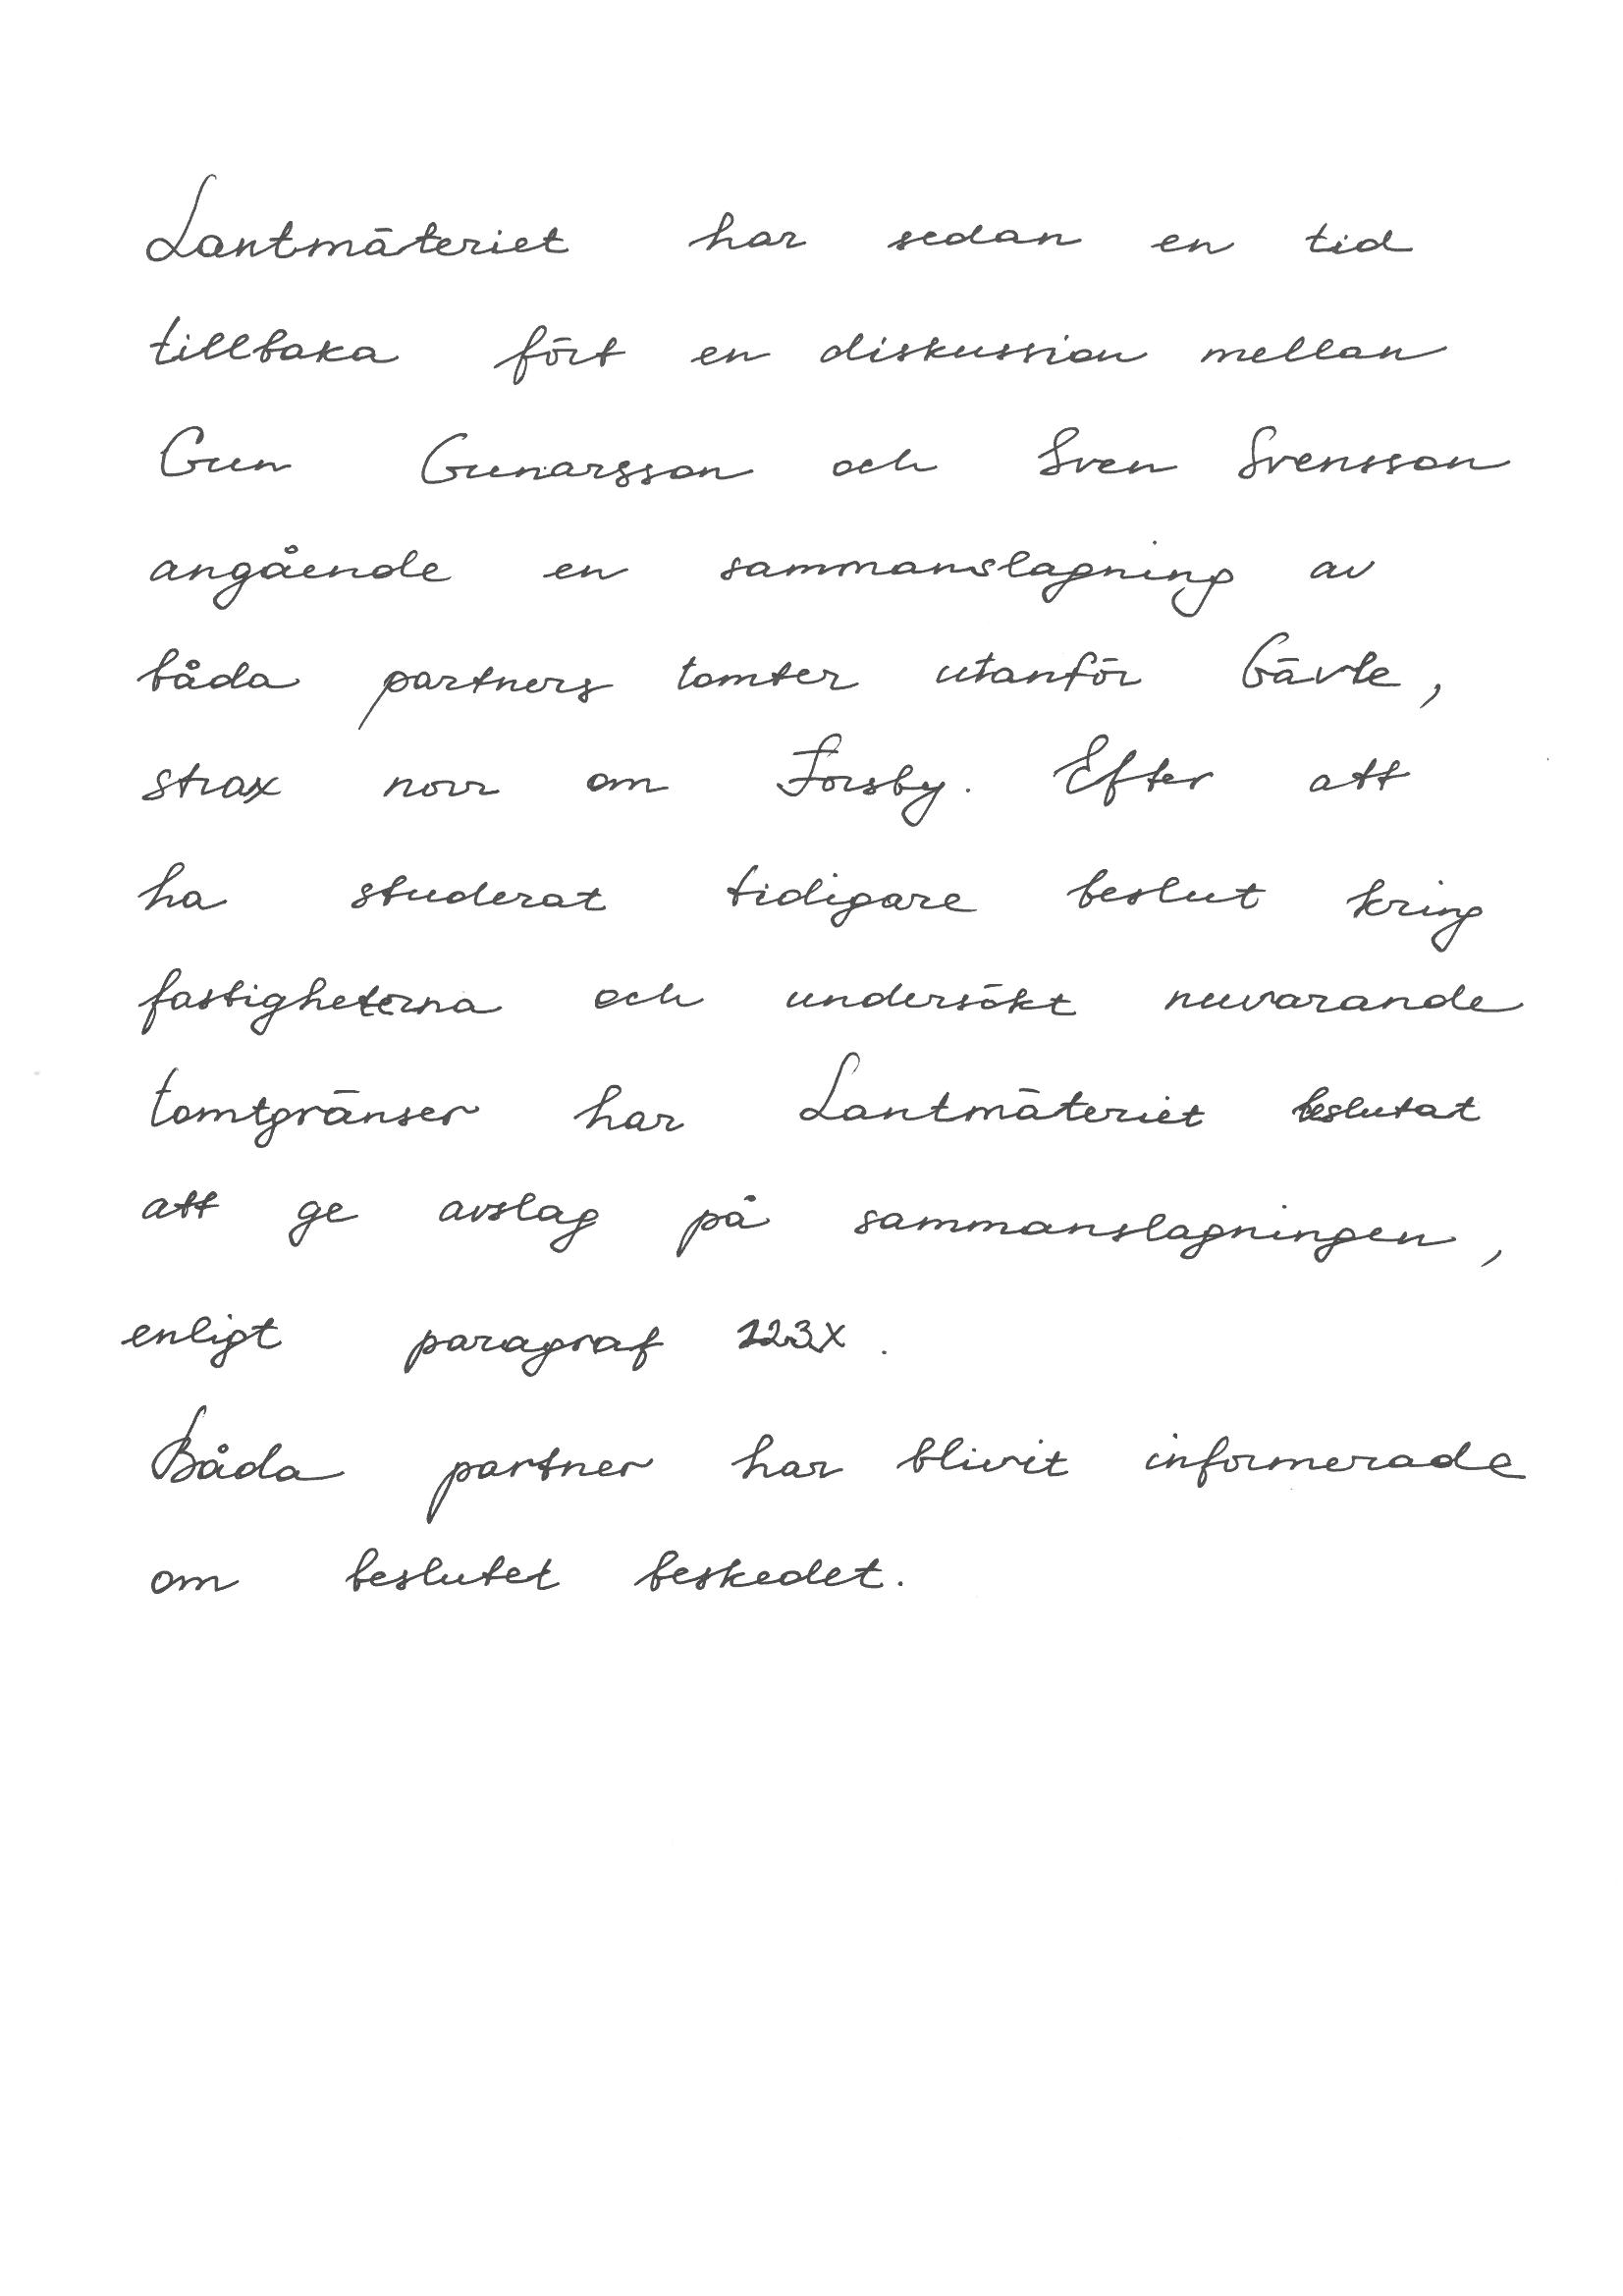 Lantmäteriet har sedan en tid
tillbaka fört en diskussion mellan
Gun Gunarsson och Sven Svensson
angående en sammanslagning av
båda partners tomter utanför Gävle,
strax norr om Forsby. Efter att
ha studerat tidigare beslut kring
fastigheterna och undersökt nuvarande
tomtgränser har Lantmäteriet beslutat
att ge avslag på sammanslagningen,
enligt paragraf 123X.
Båda partner har blivit informerade
om beslutet beskedet.